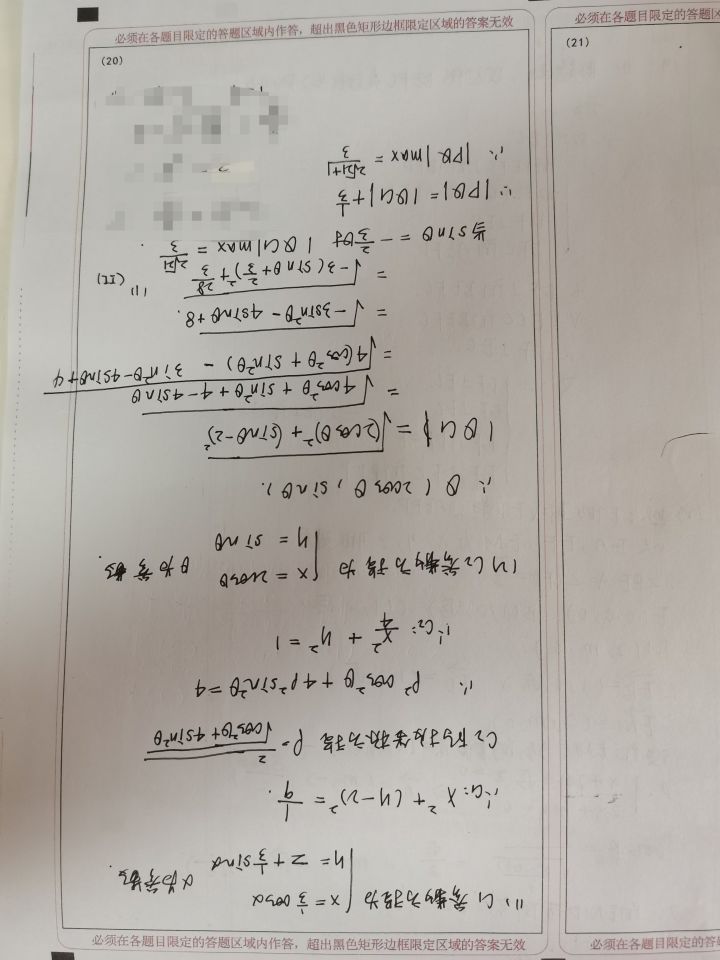 必须在各题目限定的答题区域内作答，超出黑色矩形边框限定区域的答案无效
(20)
(1) C₁参数方程为 { x = 1/3 cosα
y = 2 + 1/3 sinα α为参数.
∴C₁: x² + (y-2)² = 1/9.
C₂的极坐标方程 ρ = 2/√(cos²θ+4sin²θ)
∴ ρ²cos²θ + 4ρ²sin²θ = 4
∴C₂: x²/4 + y² = 1
(2) C₂参数方程为 { x = 2cosθ
y = sinθ θ为参数.
∴ Q (2cosθ, sinθ).
|QC₁| = √((2cosθ)² + (sinθ-2)²)
= √(4cos²θ + sin²θ + 4 - 4sinθ)
= √(4(cos²θ + sin²θ) - 3sin²θ - 4sinθ + 4)
= √(-3sin²θ - 4sinθ + 8).
= √(-3(sinθ + 2/3)² + 28/3)
当sinθ = -2/3时 |QC₁|max = 2√21/3.
∴ |PQ| = |QC₁| + 1/3
∴ |PQ|max = (2√21+1)/3
(II)
必须在各题目限定的答题区域内作答，超出黑色矩形边框限定区域的答案无效
必须在各题目限定的答题区
(21)
必须在各题目限定的答题